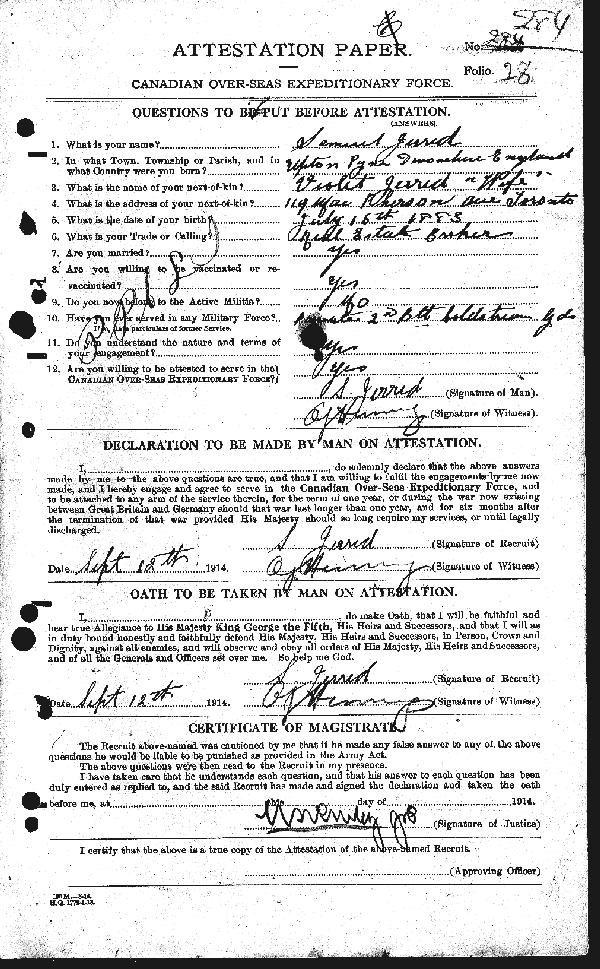 284
ATTESTATION PAPER.
No.
Folio. 28
CANADIAN OVER-SEAS EXPEDITIONARY FORCE.
QUESTIONS TO BE PUT BEFORE ATTESTATION.
(ANSWERS).
1. What is your name? Samuel Jerred
2. In what Town, Township or Parish, and in
what Country were you born? Upton Pyne Devonshire England
3. What is the name of your next-of-kin? Violet Jerred "Wife"
4. What is the address of your next-of-kin? 119 MacPherson Ave Toronto
5. What is the date of your birth? July 15th 1883
6. What is your Trade or Calling? Real Estate Broker
7. Are you married? Yes
8. Are you willing to be vaccinated or re-
vaccinated? Yes
9. Do you now belong to the Active Militia? No
10. Have you ever served in any Military Force? 2nd Btt Coldstream Gds
If so, state particulars of former Service.
11. Do you understand the nature and terms of
your engagement? Yes
12. Are you willing to be attested to serve in the
CANADIAN OVER-SEAS EXPEDITIONARY FORCE? Yes
S Jerred (Signature of Man).
(Signature of Witness).
DECLARATION TO BE MADE BY MAN ON ATTESTATION.
I, do solemnly declare that the above answers
made by me to the above questions are true, and that I am willing to fulfil the engagements by me now
made, and I hereby engage and agree to serve in the Canadian Over-Seas Expeditionary Force, and
to be attached to any arm of the service therein, for the term of one year, or during the war now existing
between Great Britain and Germany should that war last longer than one year, and for six months after
the termination of that war provided His Majesty should so long require my services, or until legally
discharged.
S Jerred (Signature of Recruit)
Date Sept 12th 1914. (Signature of Witness)
OATH TO BE TAKEN BY MAN ON ATTESTATION.
I, do make Oath, that I will be faithful and
bear true Allegiance to His Majesty King George the Fifth, His Heirs and Successors, and that I will as
in duty bound honestly and faithfully defend His Majesty, His Heirs and Successors, in Person, Crown and
Dignity, against all enemies, and will observe and obey all orders of His Majesty, His Heirs and Successors,
and of all the Generals and Officers set over me. So help me God.
S Jerred (Signature of Recruit)
Date Sept 12th 1914. (Signature of Witness)
CERTIFICATE OF MAGISTRATE.
The Recruit above-named was cautioned by me that if he made any false answer to any of the above
questions he would be liable to be punished as provided in the Army Act.
The above questions were then read to the Recruit in my presence.
I have taken care that he understands each question, and that his answer to each question has been
duly entered as replied to, and the said Recruit has made and signed the declaration and taken the oath
before me, at this day of 1914.
(Signature of Justice)
I certify that the above is a true copy of the Attestation of the above-named Recruit.
(Approving Officer)